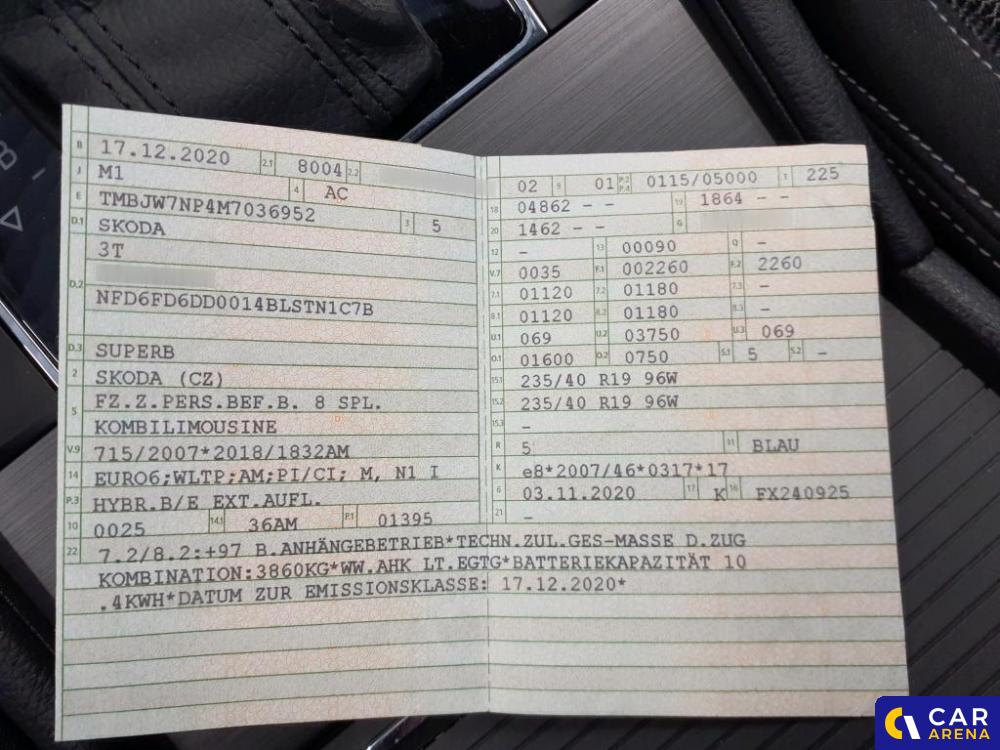 B 17.12.2020 2.1 8004 2.2
J M1 4 AC
E TMBJW7NP4M7036952 3 5
D.1 SKODA
3T
D.2
NFD6FD6DD0014BLSTN1C7B
D.3 SUPERB
2 SKODA (CZ)
5 FZ.Z.PERS.BEF.B. 8 SPL.
KOMBILIMOUSINE
V.9 715/2007*2018/1832AM
14 EURO6;WLTP;AM;PI/CI; M, N1 I
P.3 HYBR.B/E EXT.AUFL.
10 0025 14.1 36AM P.1 01395
22 7.2/8.2:+97 B.ANHÄNGEBETRIEB*TECHN.ZUL.GES-MASSE D.ZUG
KOMBINATION:3860KG*WW.AHK LT.EGTG*BATTERIEKAPAZITÄT 10
.4KWH*DATUM ZUR EMISSIONSKLASSE: 17.12.2020*
02 9 01 P.2 P.4 0115/05000 T 225
18 04862 - - 19 1864 - -
20 1462 - - G
12 - 13 00090 Q -
V.7 0035 F.1 002260 F.2 2260
7.1 01120 7.2 01180 7.3 -
8.1 01120 8.2 01180 8.3 -
U.1 069 U.2 03750 U.3 069
O.1 01600 O.2 0750 S.1 5 S.2 -
15.1 235/40 R19 96W
15.2 235/40 R19 96W
15.3 -
R 5 11 BLAU
K e8*2007/46*0317*17
6 03.11.2020 17 K 16 FX240925
21 -
CAR
ARENA